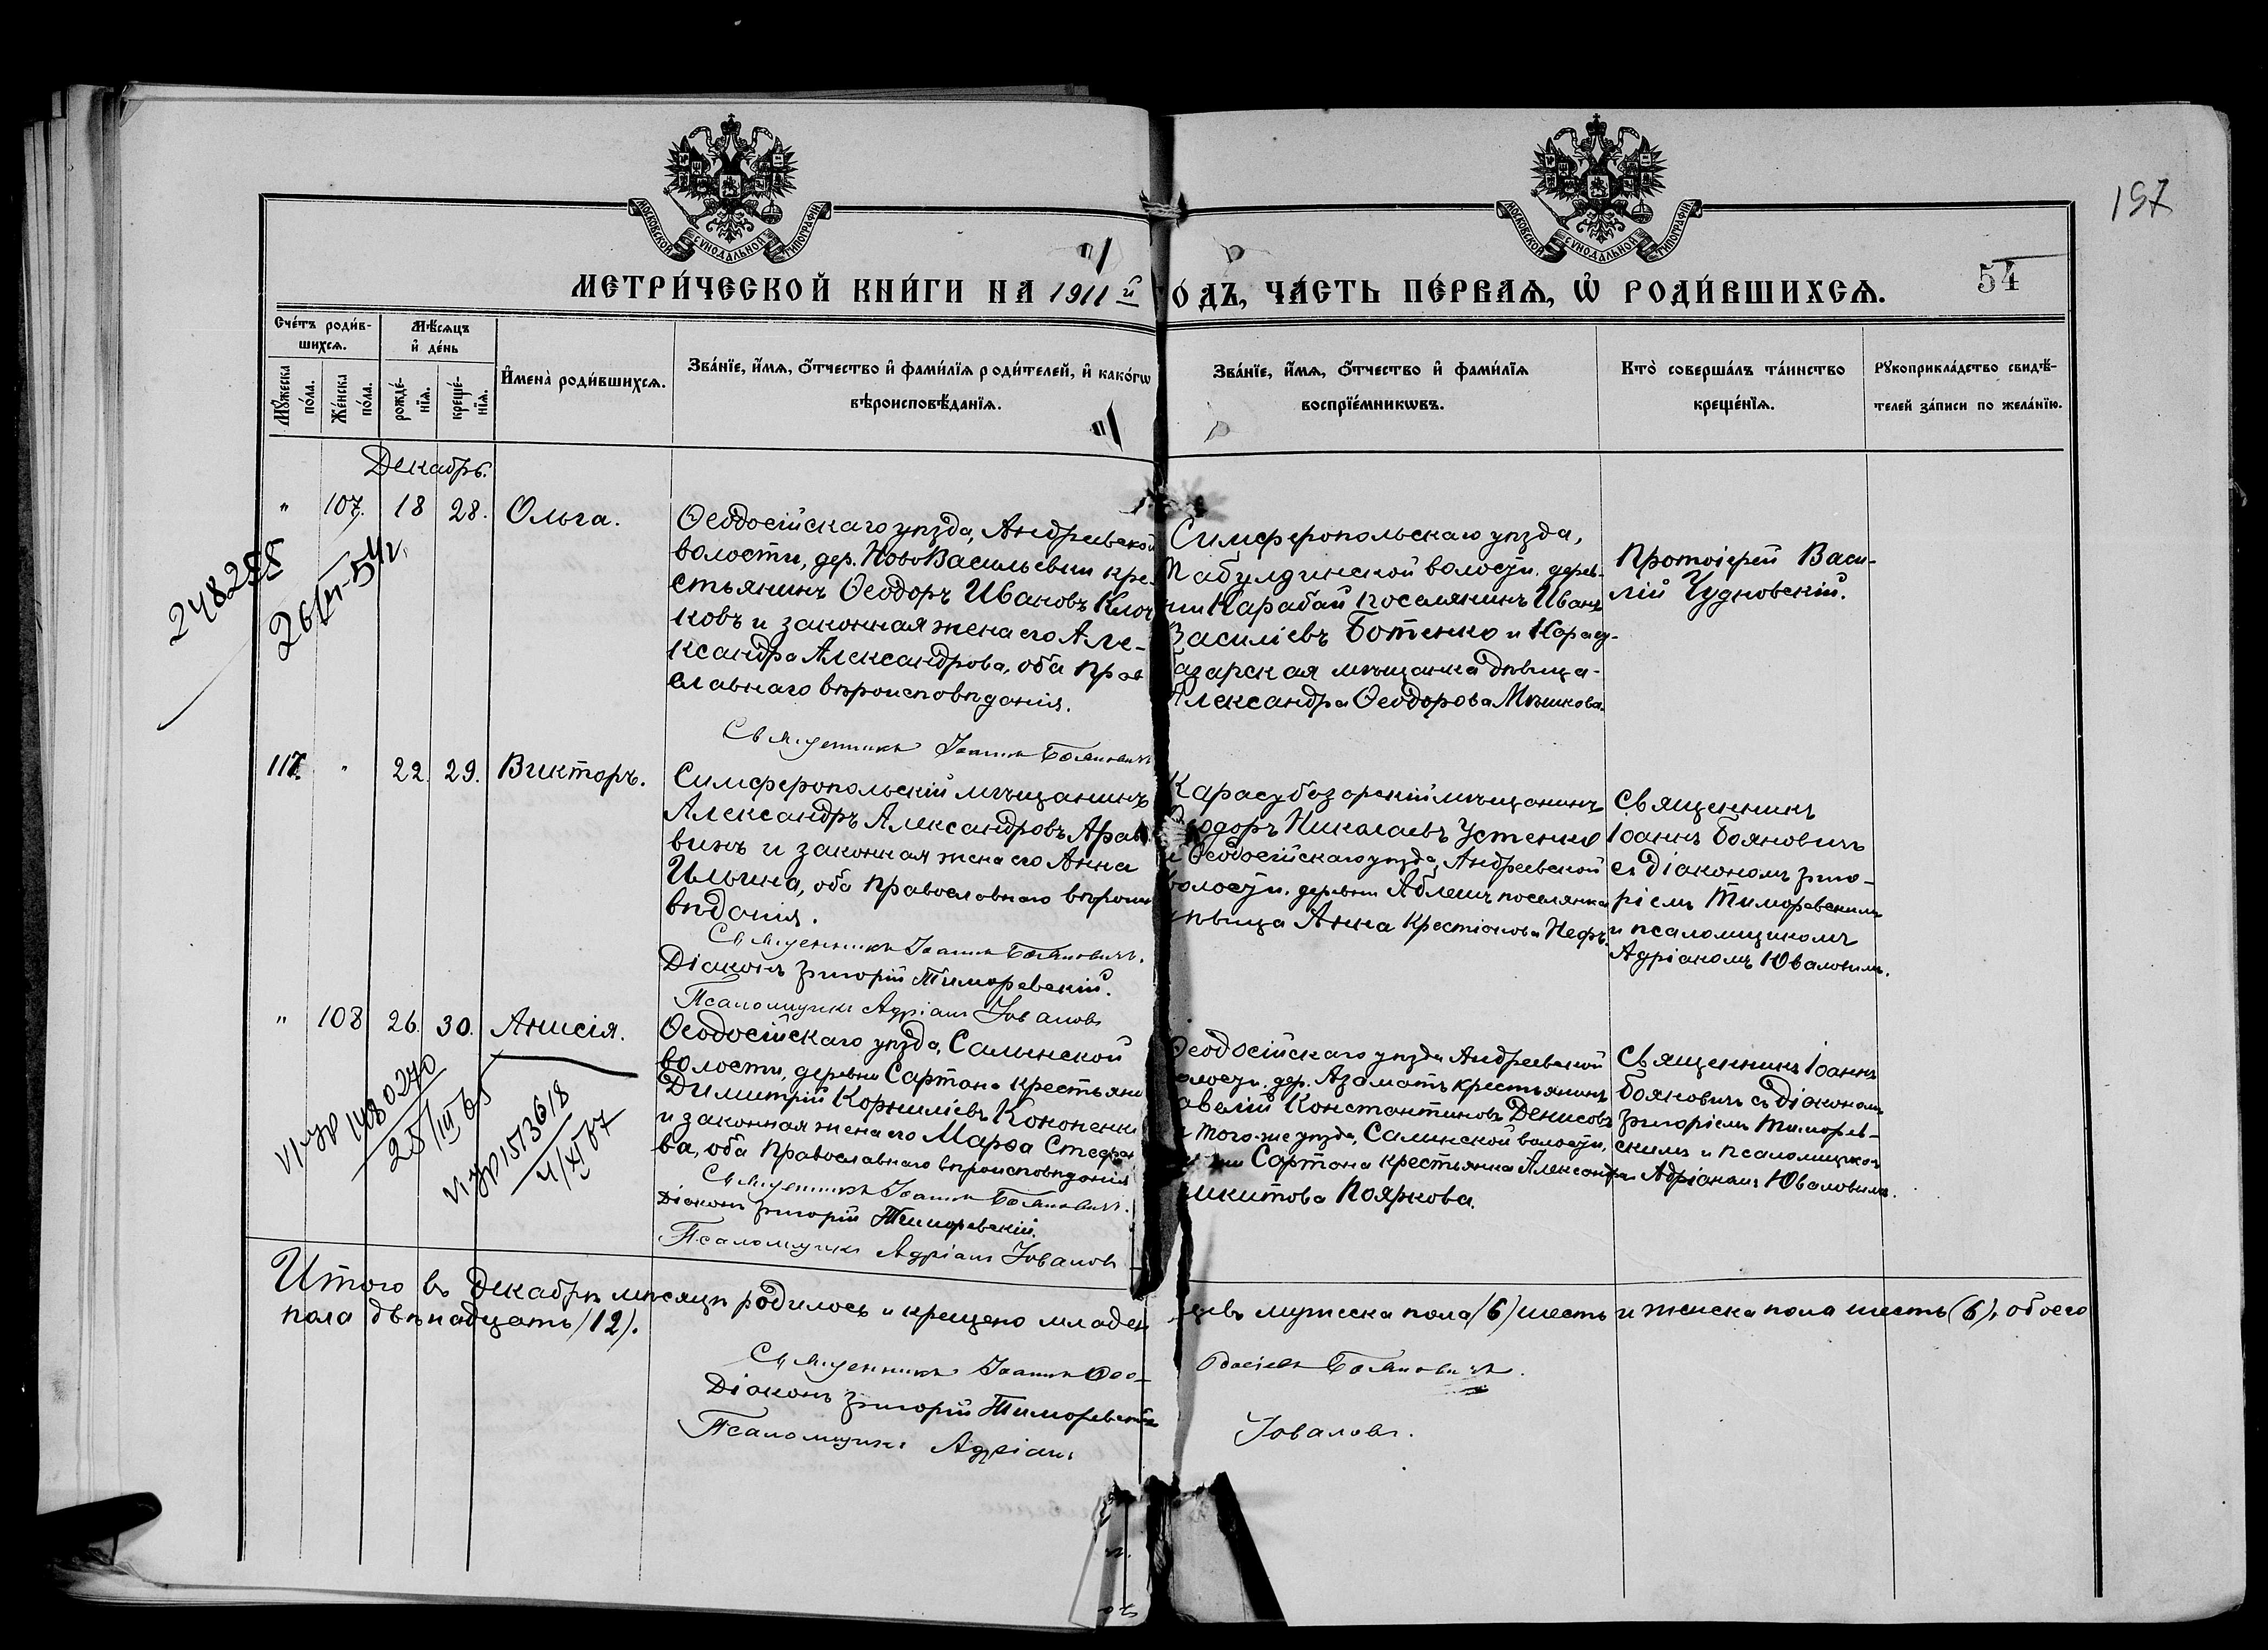 197
МОСКОВСКОЙ СУНОДАЛЬНОЙ ТИПОГРАФІИ
МОСКОВСКОЙ СУНОДАЛЬНОЙ ТИПОГРАФІИ
МЕТРИ́ЧЕСКОЙ КНИ́ГИ НА 1911 й
ОДЪ, ЧА́СТЬ ПЕ́РВАѦ, Ѡ҆ РОДИ́ВШИХСѦ.
54
Сче́тъ роди́в-
шихсѧ.
Мѣ́сѧцъ
и҆ де́нь
Мꙋ́жеска по́ла.
Же́нска по́ла.
рожде́-
нїѧ.
креще́-
нїѧ.
И҆мена̀ роди́вшихсѧ.
Зва́нїе, и҆́мѧ, ѻ҆́тчество и҆ фами́лїѧ роди́телей, и҆ како́гѡ
вѣроисповѣ́данїѧ.
Зва́нїе, и҆́мѧ, ѻ҆́тчество и҆ фами́лїѧ
воспрїе́мникѡвъ.
Кто̀ соверша́лъ та́инство
креще́нїѧ.
Рꙋкоприкла́дство свидѣ́-
телей за́писи по жела́нїю.
Декабрь.
" 107. 18 28. Ольга.
Ѳеодосійскаго уѣзда, Андреевской
волости, дер. НовоВасильевки кре-
стьянинъ Ѳеодоръ Ивановъ Клоч
ковъ и законная жена его Але-
ксандра Александрова, оба прав
славнаго вѣроисповѣданія.
Священникъ Іоаннъ Бояновичъ
Симферопольскаго уѣзда,
Табулдинской волости, дерев-
ни Карабай поселянинъ Иванъ
Василіевъ Ботенко и Карасу-
базарская мѣщанка дѣвица-
Александра Ѳеодорова Мѣшкова.
Протоіерей Васи-
лій Чудновскій.
248255
26/VI-54 г.
117. " 22. 29. Викторъ.
Симферопольскій мѣщанинъ
Александръ Александровъ Арав
винъ и законная жена его Анна
Ильина, оба православнаго вѣроиспо
вѣданія.
Священникъ Іоаннъ Бояновичъ.
Діаконъ Григорій Тиморевскій.
Псаломщикъ Адріанъ Юваловъ
Карасубазарскій мѣщанинъ
Ѳеодоръ Николаевъ Устенко
и Ѳеодосійскаго уѣзда, Андреевской
волости, деревни Аблешъ поселянка
дѣвица Анна Крестіонова Нефъ.
Священникъ
Іоаннъ Бояновичъ
съ діакономъ Григо-
ріемъ Тиморевскимъ
и псаломщикомъ
Адріаномъ Юваловымъ.
" 108 26. 30. Анисія.
Ѳеодосійскаго уѣзда, Салынской
волости, деревни Сартана крестьяни
Димитрій Корниліевъ Кононенк
и законная жена его Марѳа Стефан
ва, оба православнаго вѣроисповѣданія
Священникъ Іоаннъ Бояновичъ.
Діаконъ Григорій Тиморевскій.
Псаломщикъ Адріанъ Юваловъ
Ѳеодосійскаго уѣзда Андреевской
волости, дер. Азаматъ крестьянинъ
авелій Константиновъ Денисовъ
и того-же уѣзда, Салынской волости,
ни Сартана крестьянка Александра
икитова Пояркова.
Священникъ Іоаннъ
Бояновичъ съ діакономъ
Григоріемъ Тиморев-
скимъ и псаломщиком
Адріаномъ Юваловымъ.
VI-УР 1480270
25/III 65
VI-УР 1513618
4/XI 67
Итого въ декабрѣ мѣсяцѣ родилось и крещено младен цевъ мужеска пола (6) шесть и женска пола шесть (6), обоего
пола двѣнадцать (12).
Священникъ Іоаннъ Ѳео- досіевъ Бояновичъ.
Діаконъ Григорій Тиморевскій
Псаломщикъ Адріанъ Юваловъ.